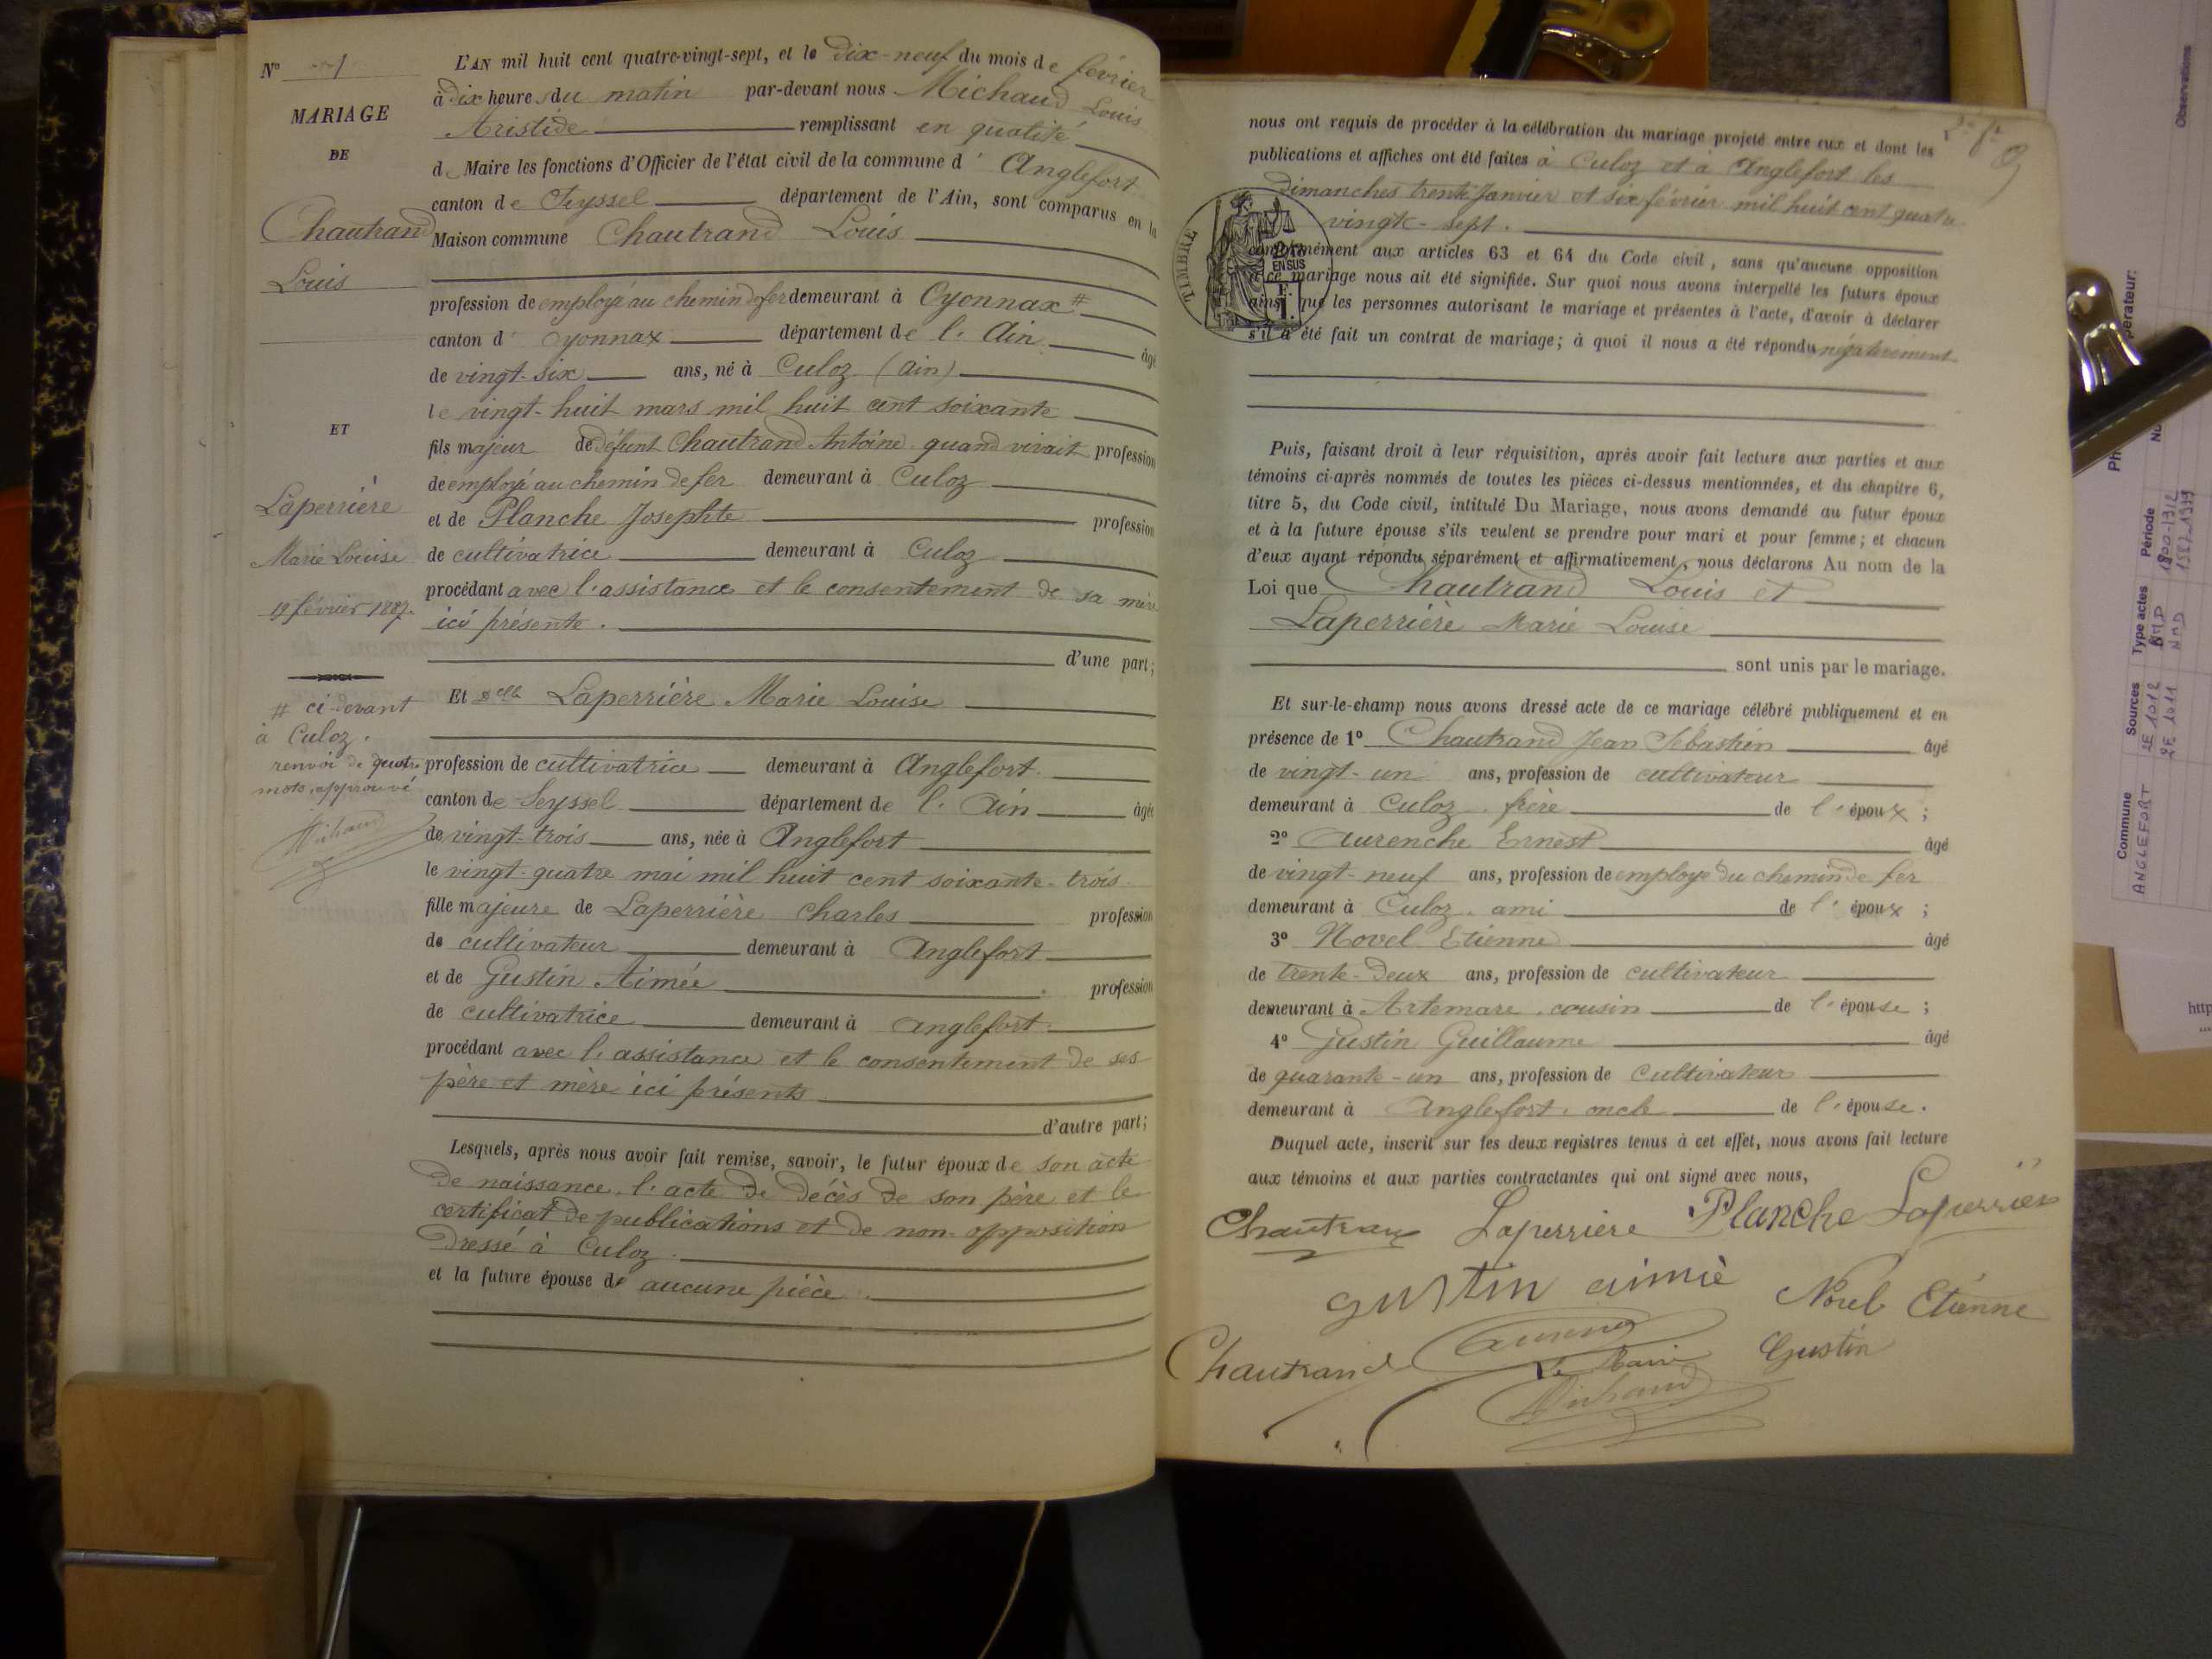 N° 1
MARIAGE
DE
Chautrand
Louis
ET
Laperrière
Marie Louise
19 février 1887.
# ci-devant
à Culoz.
renvoi de quatre
mots approuvé
Michaud
L'AN mil huit cent quatre-vingt-sept, et le dix-neuf du mois de février
à dix heures du matin par-devant nous Michaud Louis
Aristide remplissant en qualité
de Maire les fonctions d'Officier de l'état civil de la commune d'Anglefort
canton de Seyssel département de l'Ain, sont comparus en la
Maison commune Chautrand Louis
profession de employé au chemin de fer demeurant à Oyonnax #
canton d'Oyonnax département de l'Ain âgé
de vingt-six ans, né à Culoz (Ain)
le vingt-huit mars mil huit cent soixante
fils majeur de défunt Chautrand Antoine quand vivait profession
de employé au chemin de fer demeurant à Culoz
et de Planche Josephte profession
de cultivatrice demeurant à Culoz
procédant avec l'assistance et le consentement de sa mère
ici présente.
d'une part;
Et Delle Laperrière Marie Louise
profession de cultivatrice demeurant à Anglefort.
canton de Seyssel département de l'Ain âgée
de vingt-trois ans, née à Anglefort
le vingt-quatre mai mil huit cent soixante-trois
fille majeure de Laperrière Charles profession
de cultivateur demeurant à Anglefort
et de Gustin Aimée profession
de cultivatrice demeurant à Anglefort.
procédant avec l'assistance et le consentement de ses
père et mère ici présents
d'autre part;
Lesquels, après nous avoir fait remise, savoir, le futur époux de son acte
de naissance, l'acte de décès de son père et le
certificat de publications et de non-opposition
dressé à Culoz.
et la future épouse de aucune pièce.
nous ont requis de procéder à la célébration du mariage projeté entre eux et dont les
publications et affiches ont été faites à Culoz et à Anglefort les
dimanches trente janvier et six février mil huit cent quatre
vingt-sept.
TIMBRE
EN SUS
conformément aux articles 63 et 64 du Code civil, sans qu'aucune opposition
à ce mariage nous ait été signifiée. Sur quoi nous avons interpellé les futurs époux
ainsi que les personnes autorisant le mariage et présentes à l'acte, d'avoir à déclarer
s'il a été fait un contrat de mariage; à quoi il nous a été répondu négativement
Puis, faisant droit à leur réquisition, après avoir fait lecture aux parties et aux
témoins ci-après nommés de toutes les pièces ci-dessus mentionnées, et du chapitre 6,
titre 5, du Code civil, intitulé Du Mariage, nous avons demandé au futur époux
et à la future épouse s'ils veulent se prendre pour mari et pour femme; et chacun
d'eux ayant répondu séparément et affirmativement, nous déclarons Au nom de la
Loi que Chautrand Louis et
Laperrière Marie Louise
sont unis par le mariage.
Et sur-le-champ nous avons dressé acte de ce mariage célébré publiquement et en
présence de 1° Chautrand Jean Sebastien âgé
de vingt-un ans, profession de cultivateur
demeurant à Culoz, frère de l'époux;
2° Aurenche Ernest âgé
de vingt-neuf ans, profession de employé du chemin de fer
demeurant à Culoz, ami de l'époux;
3° Novel Etienne âgé
de trente-deux ans, profession de cultivateur
demeurant à Artemare, cousin de l'épouse;
4° Gustin Guillaume âgé
de quarante-un ans, profession de cultivateur
demeurant à Anglefort, oncle de l'épouse.
Duquel acte, inscrit sur les deux registres tenus à cet effet, nous avons fait lecture
aux témoins et aux parties contractantes qui ont signé avec nous,
Chautrand Laperrière Planche Laperrière
gustin aimée Novel Etienne
Chautrand Gustin
Le Maire
Michaud
Observations
Commune Sources Type actes Période
ANGLEFORT 2E 1012 NMD
2E 1011 NMD
http